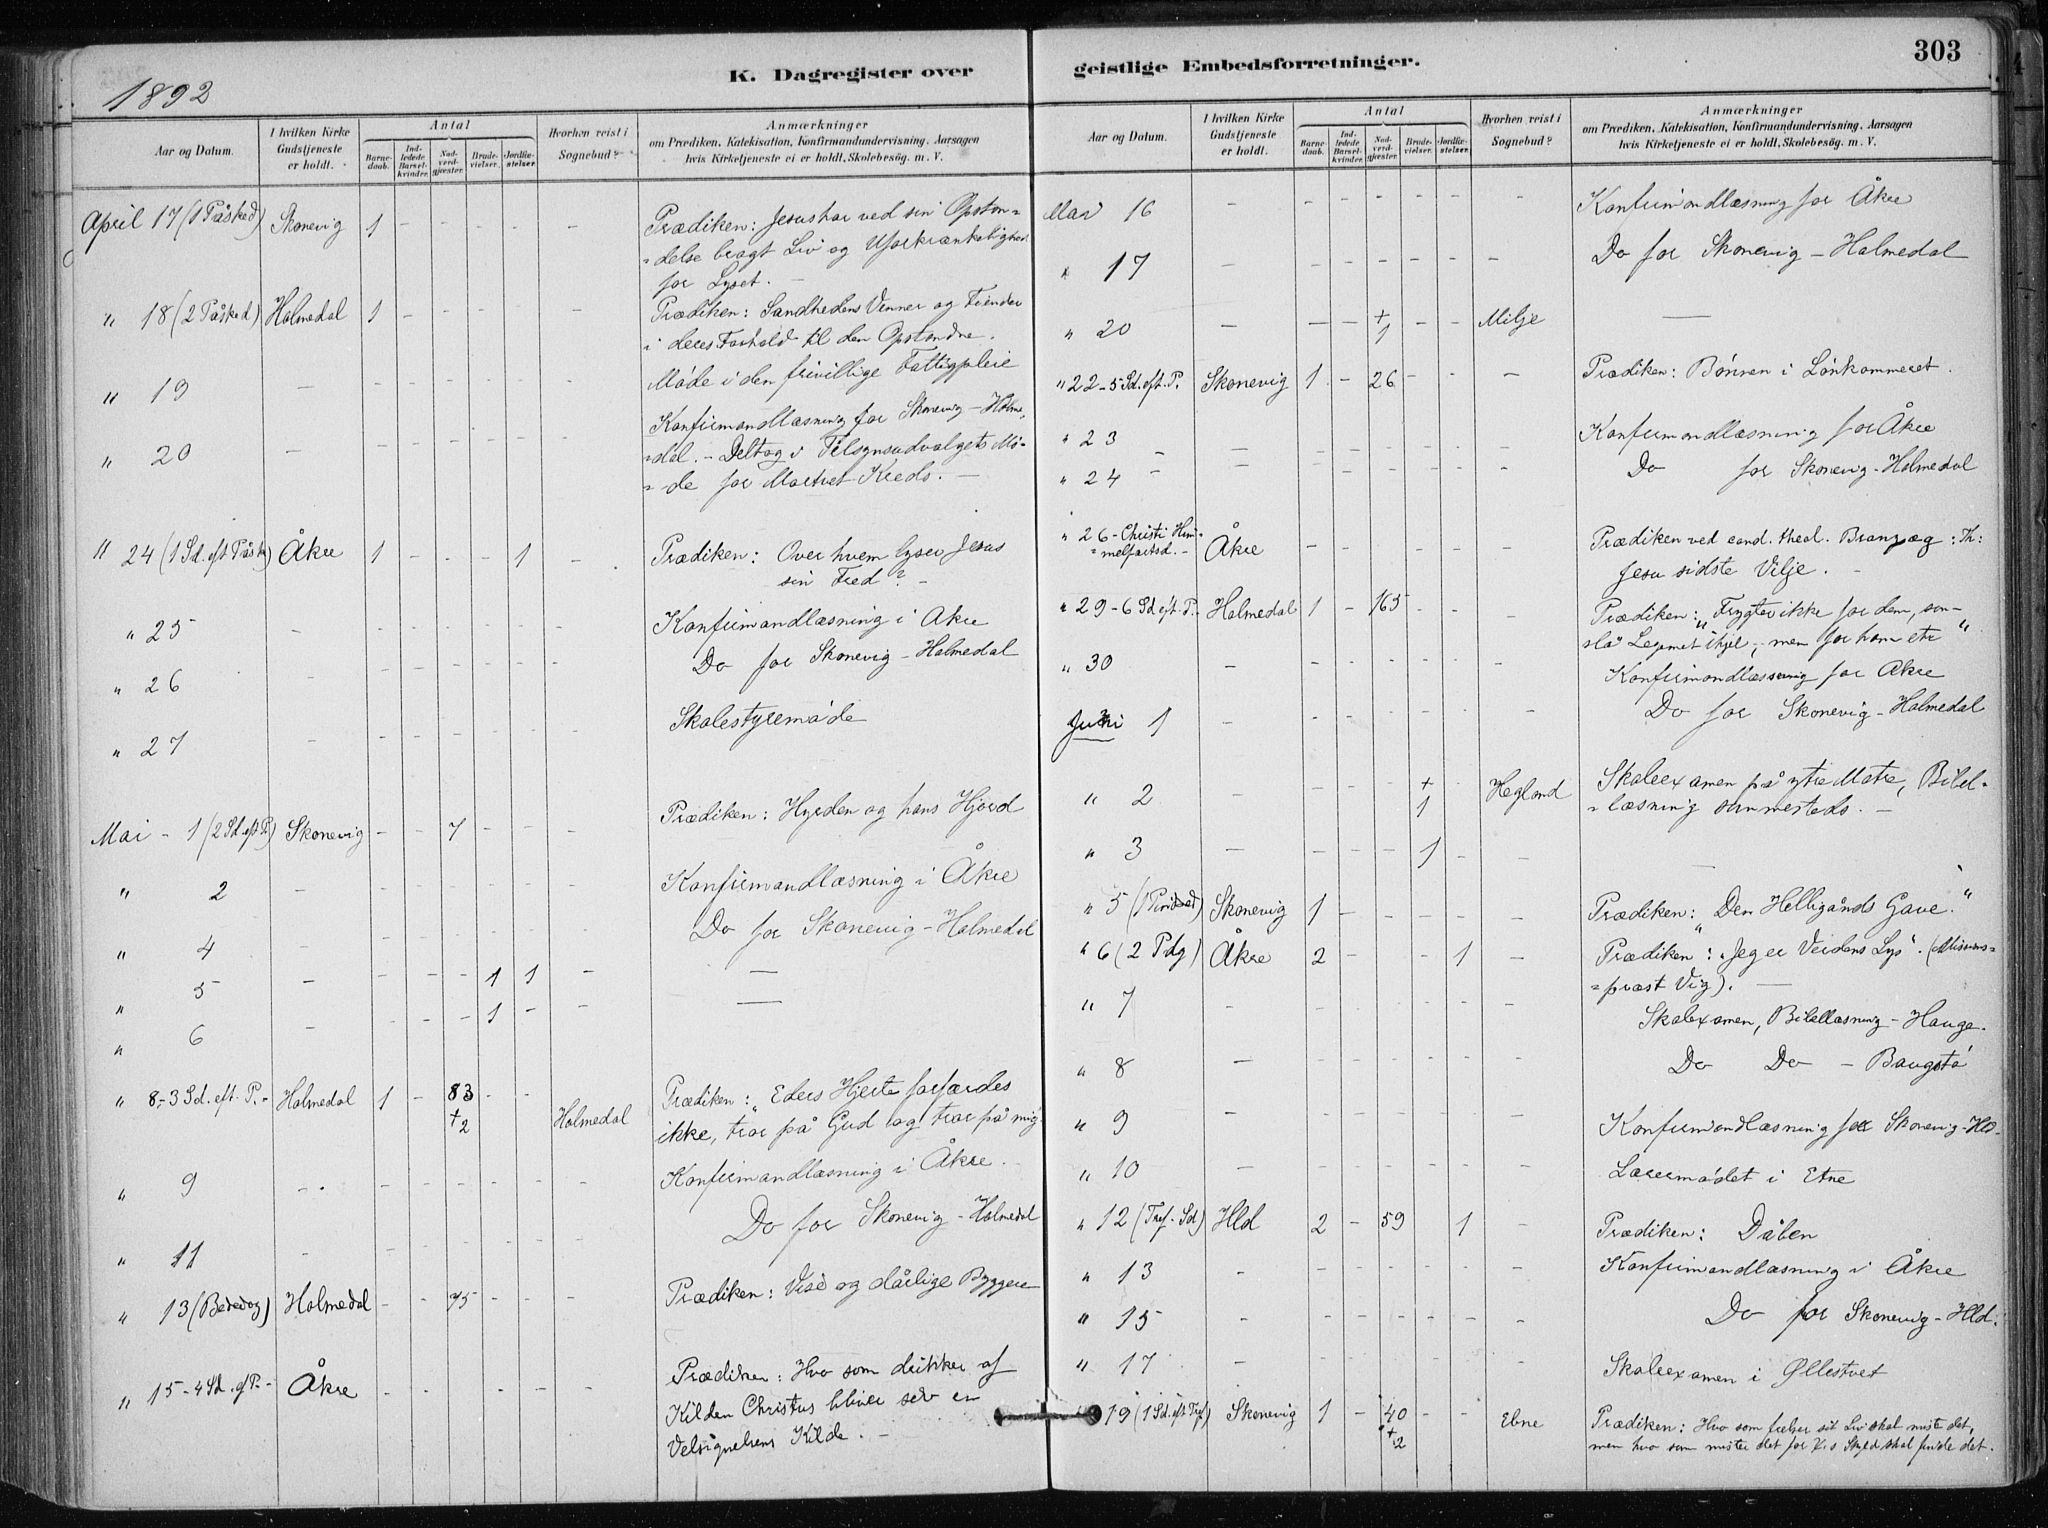 303
K. Dagregister over geistlige Embedsforretninger.
1892
Aar og Datum.
I hvilken Kirke Gudstjeneste er holdt.
Antal
Barne-daab.
Ind-ledede Barsel-kvinder.
Nad-verd-gjester.
Brude-vielser.
Jordfæ-stelser.
Hvorhen reist i Sognebud?
Anmærkninger
om Prædiken, Katekisation, Konfirmandundervisning, Aarsagen
hvis Kirketjeneste ei er holdt, Skolebesøg. m. V.
April 17 (1 Påsked) Skonevig 1 - - - - - Prædiken: Jesus har ved sin Opston=
=delse bragt Liv og Uforkrænkelighed
for Lyset. -
" 18 (2 Påsked) Holmedal 1 - - - - - Prædiken: Sandhedens Venner og Fiender
i deres Forhold til den Opstandne.
" 19 - - - - - - - Møde i den frivillige Fattigpleie
" 20 - - - - - - - Konfirmandlæsning for Skonevig - Holme-
=dal. - Deltog i Tilsynsudvalgets Mø-
=de for Martvet Kreds. -
" 24 (1 Sd. eft Påske) Åkre 1 - - - 1 - Prædiken: Over hvem lyser Jesus
sin Fred? -
" 25 - - - - - - - Konfirmandlæsning i Åkre
" 26 - - - - - - - Do for Skonevig - Holmedal
" 27 - - - - - - - Skolestyremøde
Mai - 1 (2 Sd eft P.) Skonevig - - 7 - - - Prædiken: Hyrden og hans Hjord
" 2 - - - - - - - Konfirmandlæsning i Åkre
" 4 - - - - - - - Do for Skonevig - Holmedal
" 5 - - - - 1 1 - -
" 6 - - - - 1 - - -
" 8 - 3 Sd. eft. P. - Holmedal 1 - 83 - - Prædiken: "Eders Hjerte forfærdes
+2 Holmedal ikke, tror på Gud og tror på mig
" 9 - - - - - - - Konfirmandlæsning i Åkre.
" 11 - - - - - - - Do for Skonevig - Holmedal
" 13 (Bededag) Holmedal - - 75 - - - Prædiken: Vise og dårlige Byggere
" 15 - 4 Sd. ef P. - Åkre - - - - - - Prædiken: Hvo som drikker af
Kilden Christus bliver selv en
Velsignelsens Kilde. -
Aar og Datum.
I hvilken Kirke Gudstjeneste er holdt.
Antal
Barne-daab.
Ind-ledede Barsel-kvinder.
Nad-verd-gjester.
Brude-vielser.
Jordfæ-stelser.
Hvorhen reist i Sognebud?
Anmærkninger
om Prædiken, Katekisation, Konfirmandundervisning, Aarsagen
hvis Kirketjeneste ei er holdt, Skolebesøg. m. V.
Mai 16 - - - - - - - Konfirmandlæsning for Åkre
" 17 - - - - - - - Do for Skonevig - Holmedal
" 20 - - - +1 - - Milje -
" 22 - 5 Sd. eft. P. Skonevig 1 - 26 - - - Prædiken: Bønnen i Lønkammeret.
" 23 - - - - - - - Konfirmandlæsning for Åkre
" 24 - - - - - - - Do for Skonevig - Holmedal
" 26 - Christi Him-
=melfartsd. - Åkre - - - - - - Prædiken ved cand. theol. Branzæg: Th:
Jesu sidste Vilje. -
" 29 - 6 Sd eft. P. - Holmedal 1 - 165 - - - Prædiken: "Frygter ikke for dem, som
slå Legemet ihjel, men for ham etc"
" 30 - - - - - - - Konfirmandlæsning for Åkre
Juni 1 - - - - - - - Do for Skonevig - Holmedal
" 2 - - - - +1 - Hegland Skoleexamen på ytre Matre, Bibel-
=læsning sammesteds. -
" 3 - - - - 1 - - -
" 5 (1 Pinsed) Skonevig 1 - - - - - Prædiken: "Den Helligånds Gave."
" 6 (2 Pdg) Åkre 2 - - - 1 - Prædiken: "Jeg er Verdens Lys". (Missions=
=præst Vig). -
" 7 - - - - - - - Skolexamen, Bibellæsning - Hauge.
" 8 - - - - - - - Do Do - Baugstø
" 9 - - - - - - - Konfirmandlæsning for Skonevig - Hld -
" 10 - - - - - - - Lærermødet i Etne
" 12 (Tref. Sd) Hld 2 - 59 - 1 - Prædiken: Dåben
" 13 - - - - - - - Konfirmandlæsning i Åkre
" 15 - - - - - - - Do for Skonevig - Hld.
" 17 - - - - - - - Skoleexamen i Øllestvet
" 19 (1 Sd. eft Tref) Skonevig 1 - 40 - - Ebne Prædiken: Hvo som frelser sit Liv skal miste det,
+2 men hvo som mister det for Skyld skal finde det.